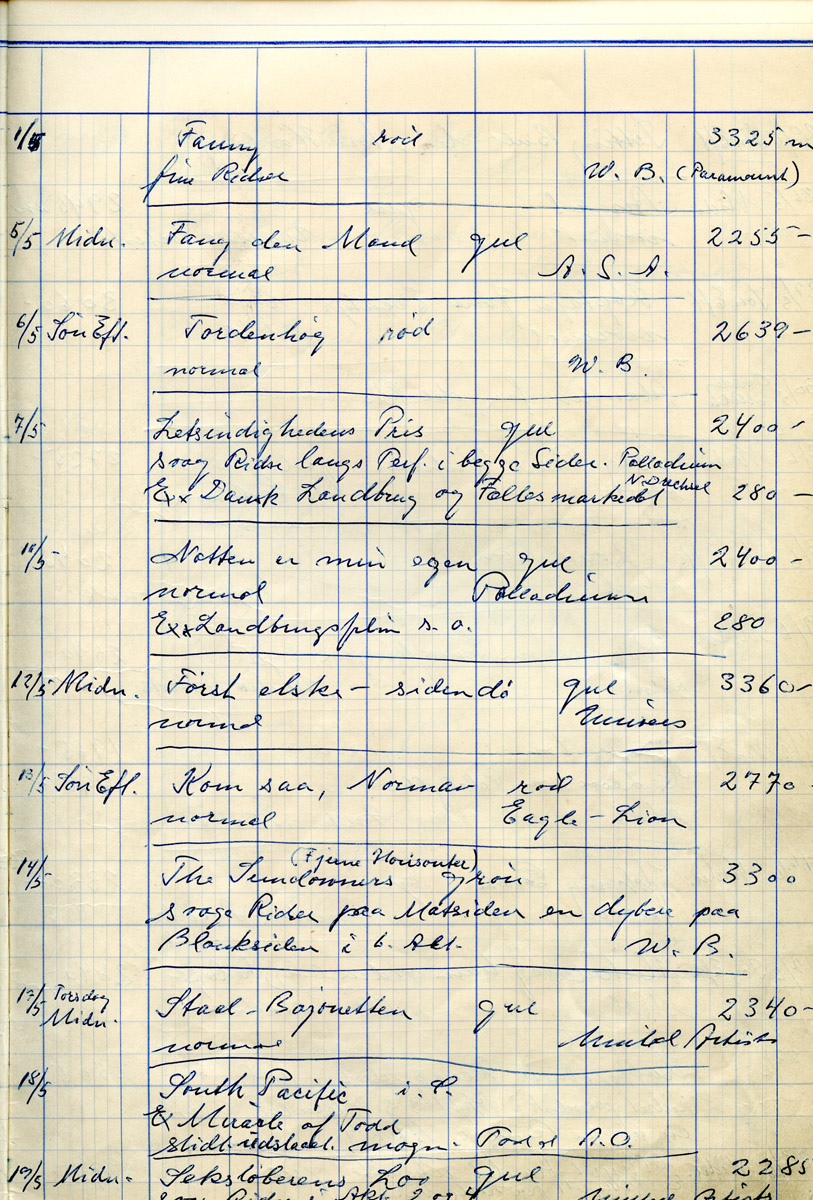 1/5 Fanny rød 3325 m
fine Ridser W. B. (Paramount)
5/5 Midn. Fang den Mand gul 2255 -
normal A. S. A.
6/5 Søn Eft. Tordenhøg rød 2639 -
normal W. B.
7/5 Letsindighedens Pris gul 2400 -
svag Ridse langs Perf. i begge Sider. Palladium
Ex Dansk Landbrug og Fællesmarkedet 280 -
10/5 Natten er min egen gul 2400 -
normal Palladium
Ex Landbrugsfilm s. o. 280
12/5 Midn. Først elske - siden dø gul 3360 -
normal
13/5 Søn Eft. Kom saa, Norman rød 2770
normal Eagle - Lion
(Fjerne Horisonter)
14/5 The Sundowners grøn 3300
svage Ridser paa Matsiden en dybere paa
Blanksiden i 6. Akt. W. B.
17/5 Torsdag Midn. Staal - Bajonetten gul 2340 -
normal United Artists
18/5 South Pacific i. P.
Ex Miracle of Todd
slidt magn. A. O.
19/5 Midn. Seksløberens Lov gul 2285